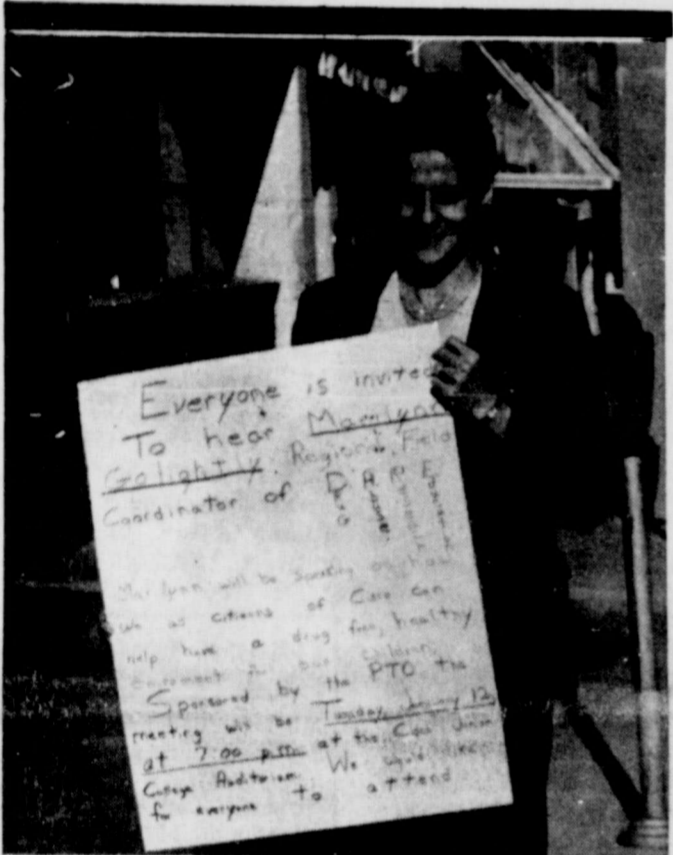 Everyone is invited
To hear Marilynn
Golightly, Regional Field
Coordinator of Drug Abuse Resistance Education
Marilynn will be speaking on how
we as citizens of Cisco can
help have a drug free, healthy
environment for our children.
Sponsored by the PTO the
meeting will be Tuesday, January 12,
at 7:00 p.m. at the Cisco Junior
College Auditorium. We would
for everyone to attend